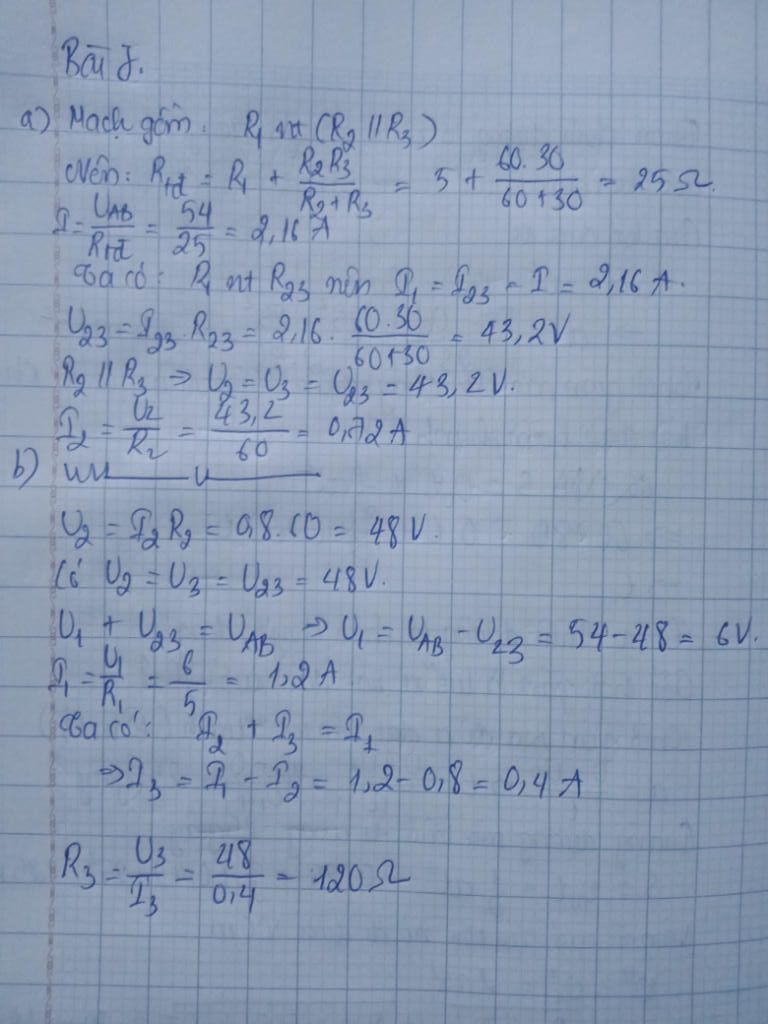 Bài 7.
a) Mạch gồm: R₁ nt (R₂ // R₃)
Nên: Rtđ = R₁ + R₂R₃/(R₂+R₃) = 5 + 60.30/(60+30) = 25Ω.
I = U_AB/Rtđ = 54/25 = 2,16 A
Ta có: R₁ nt R₂₃ nên I₁ = I₂₃ = I = 2,16 A.
U₂₃ = I₂₃.R₂₃ = 2,16. 60.30/(60+30) = 43,2V
R₂ // R₃ => U₂ = U₃ = U₂₃ = 43,2V.
I₂ = U₂/R₂ = 43,2/60 = 0,72A
b)
U₂ = I₂R₂ = 0,8.60 = 48V.
Có U₂ = U₃ = U₂₃ = 48V.
U₁ + U₂₃ = U_AB => U₁ = U_AB - U₂₃ = 54 - 48 = 6V.
I₁ = U₁/R₁ = 6/5 = 1,2A
Ta có: I₂ + I₃ = I₁
=> I₃ = I₁ - I₂ = 1,2 - 0,8 = 0,4 A
R₃ = U₃/I₃ = 48/0,4 = 120Ω